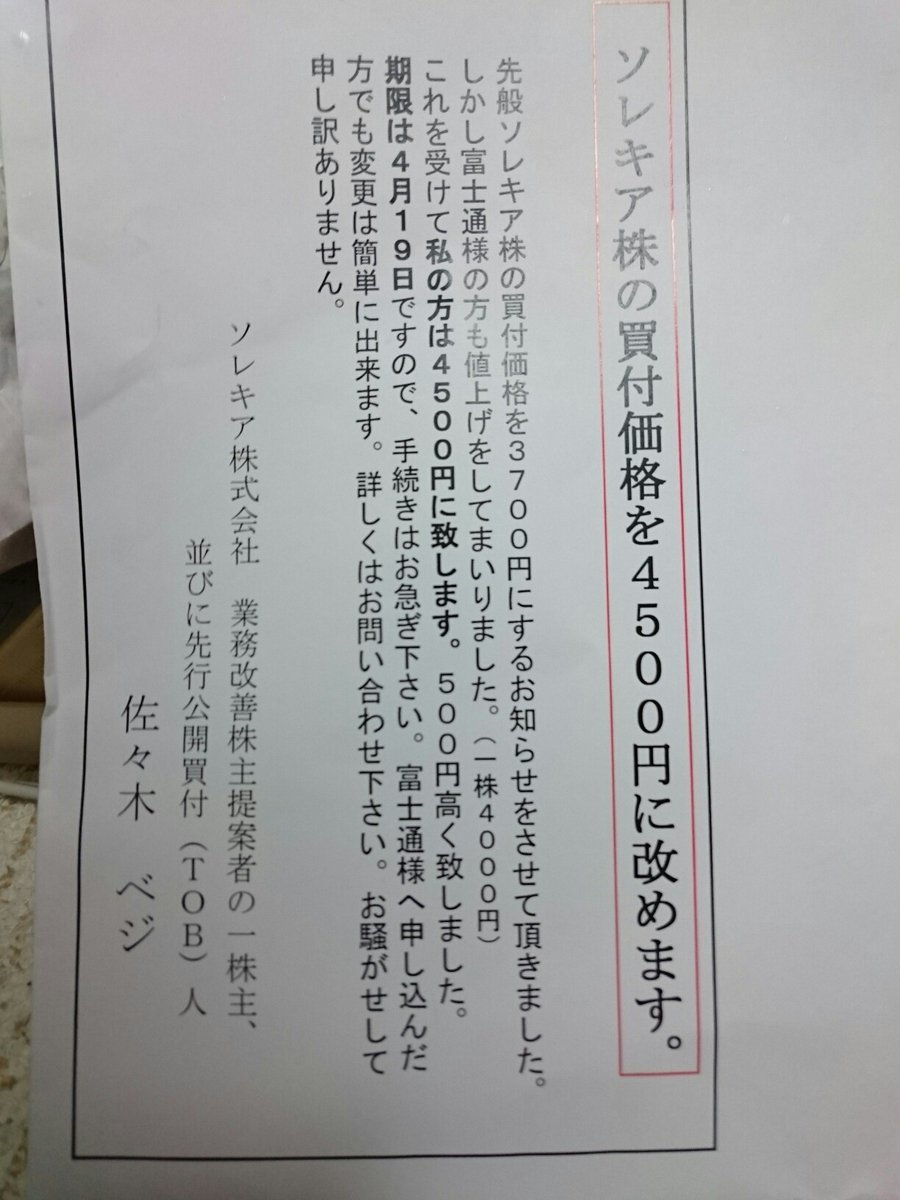 ソレキア株の買付価格を4500円に改めます。
先般ソレキア株の買付価格を3700円にするお知らせをさせて頂きました。
しかし富士通様の方も値上げをしてまいりました。（一株4000円）
これを受けて私の方は4500円に致します。500円高く致しました。
期限は4月19日ですので、手続きはお急ぎ下さい。富士通様へ申し込んだ
方でも変更は簡単に出来ます。詳しくはお問い合わせ下さい。お騒がせして
申し訳ありません。
ソレキア株式会社　業務改善株主提案者の一株主、
並びに先行公開買付（TOB）人
佐々木　ベジ